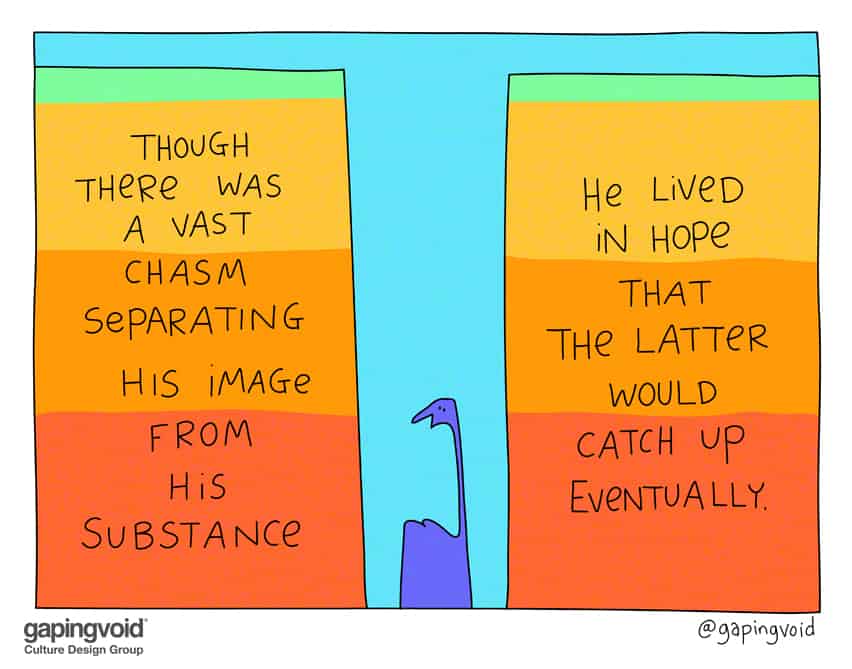 THOUGH
THeRe WAS
A VAST
CHASM
SePARATING
HIS iMAGe
FROM
HiS
SUBSTANCe
He LiVeD
iN HOPe
THAT
THe LATTeR
WOULD
CATCH UP
EVeNTUALLY.
gapingvoid®
Culture Design Group
@gapingvoid